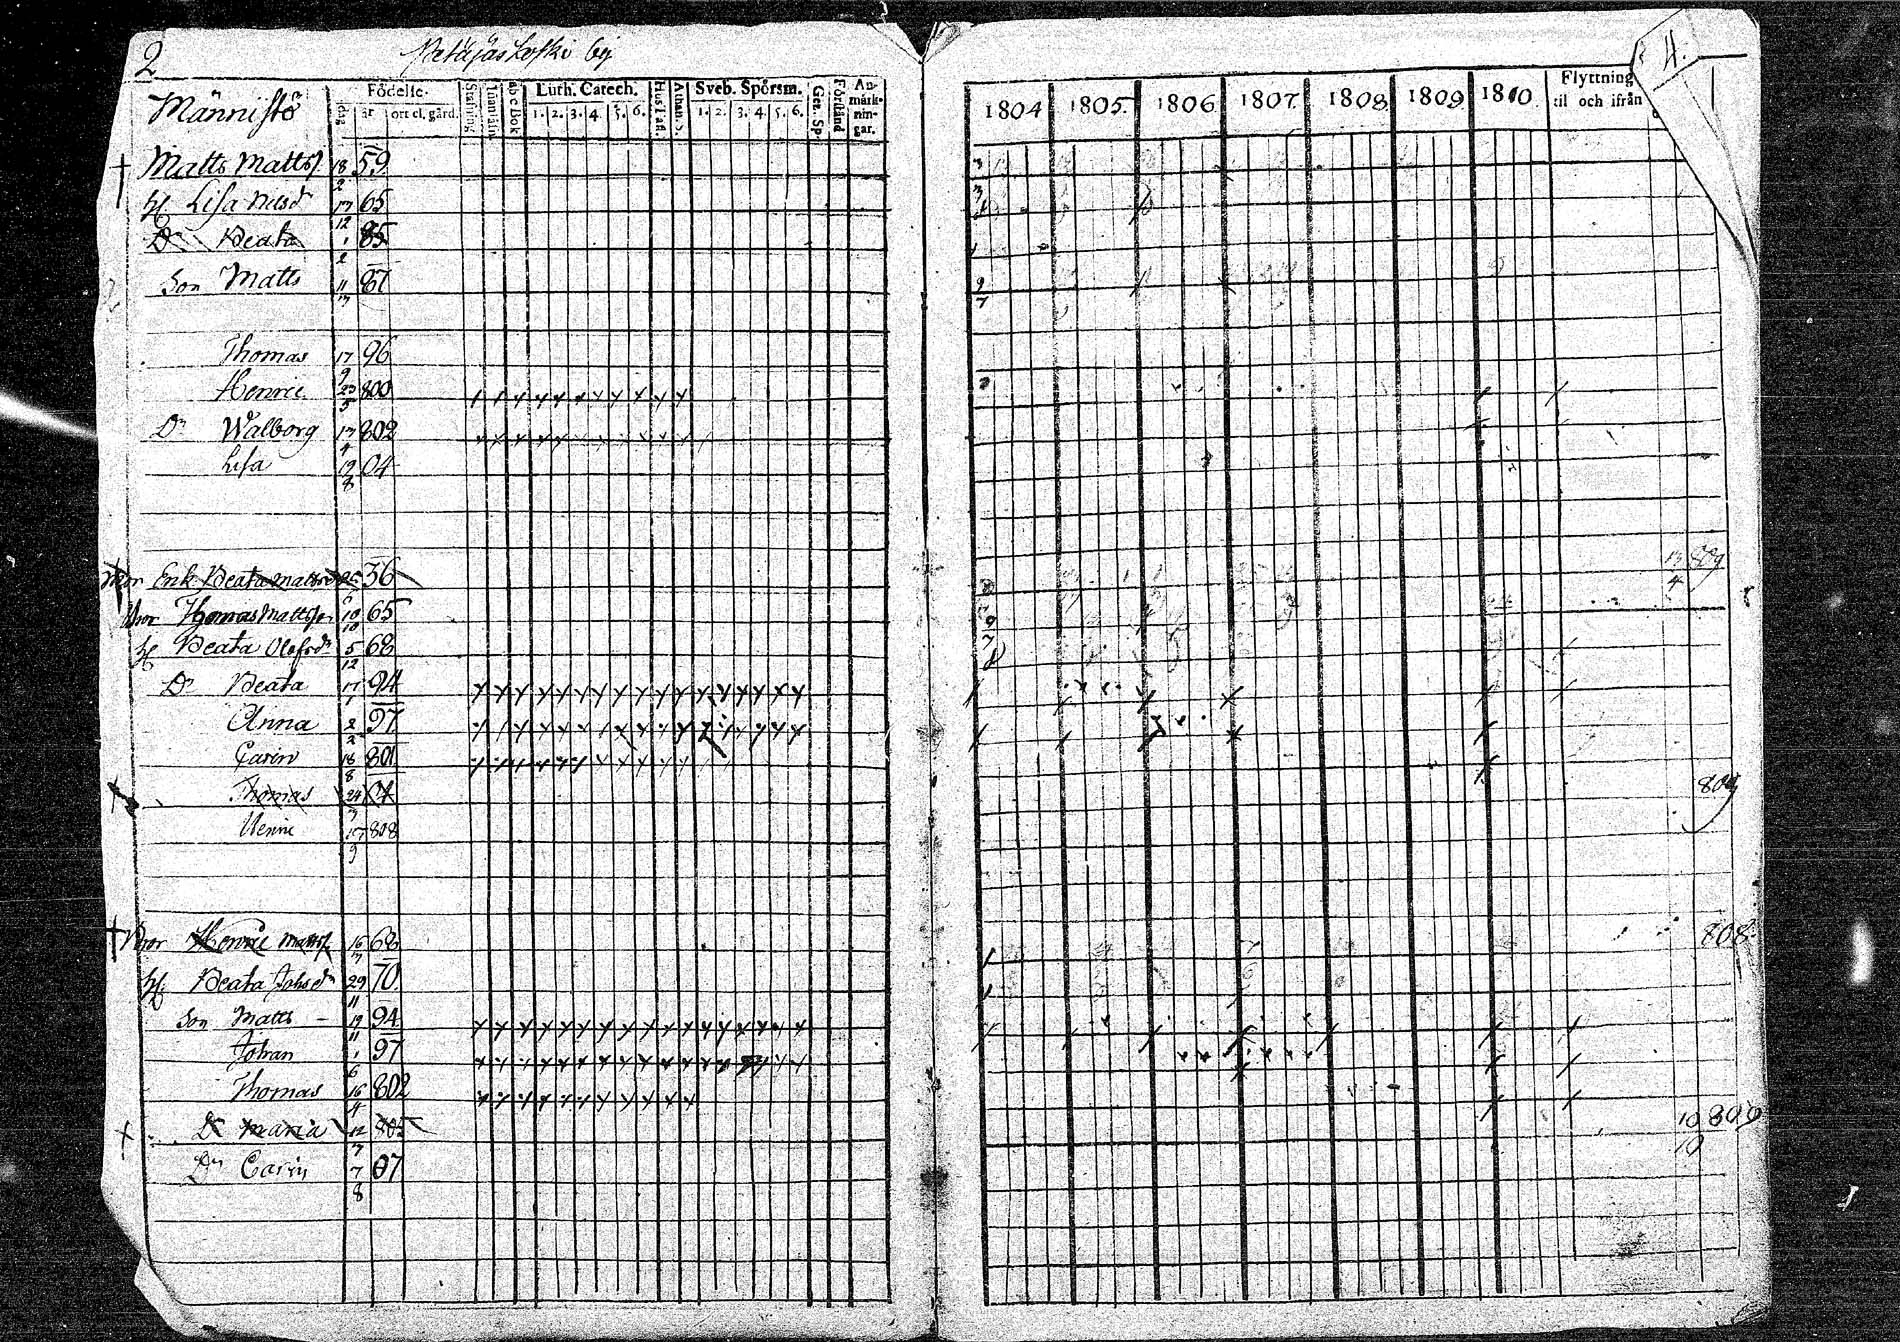 2 Metäjäskoski by
Männistö
Födelse- dag år ort el. gård.
Stafning
Innanläsn.
a b c Bok
Luth. Catech. 1. 2. 3. 4. 5. 6.
Hus Tafl.
Athan. S.
Sveb. Spörsm. 1. 2. 3. 4. 5. 6.
Gez. Sp.
Förstånd
An-
märk-
nin-
gar.
Matts Mattss. 18/2 59
H. Lisa Nilsdr 17/12 65
Dr Beata 1/2 85
Son Matts 11/7 87
Thomas 17/9 96
Henric 23/5 800
Dr Walborg 17/4 802
Lisa 19/8 04
Mor Enk. Beata Mattsdr 36
Bror Thomas Mattss. 10/10 65
H. Beata Olofsdr 5/12 68
Dr Beata 17/1 94
Anna 2/2 97
Carin 18/8 801
Thomas 24
Henric 15/9 808
Bror Henric Mattss. 16/7 68
H. Beata Johsdr 29/11 70
Son Matts 19/11 94
Johan 1/6 97
Thomas 16/4 802
Dr Maria 12/7 805
Dr Carin 7/8 07
4.
1804 1805. 1806 1807. 1808 1809 1810. Flyttning
til och ifrån
13/4 809
809
808.
10/10 809